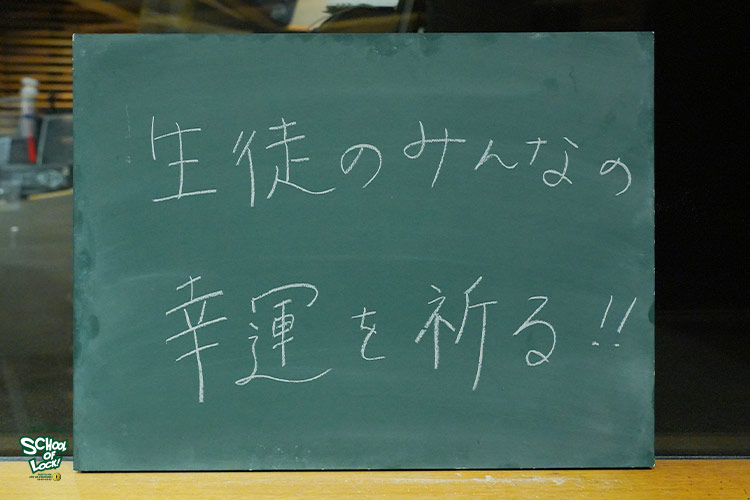 生徒のみんなの
幸運を祈る!!
SCHOOL
OF
LOCK!